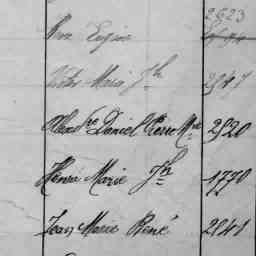 2623
Eugène
Victor Marie Jh 2947
Alexdre Daniel Pierre Mie 2520
Henri Marie Jh 1770
Jean Marie René 2841